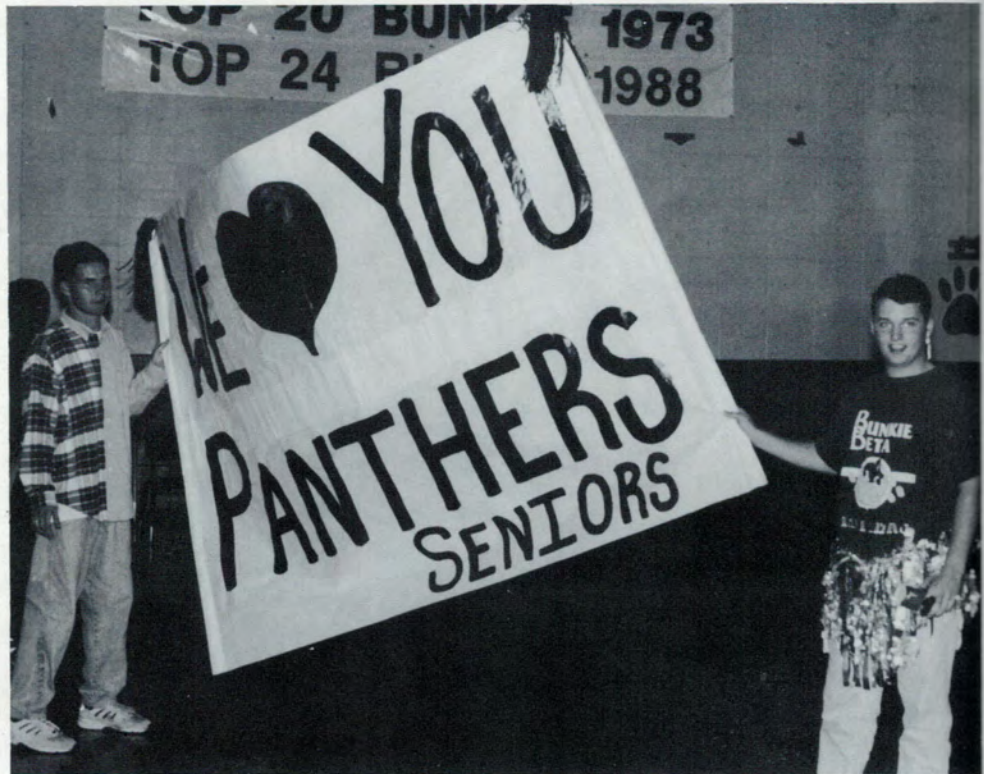 TOP 20 BUNKIE 1973
TOP 24 1988
WE ♥ YOU
PANTHERS
SENIORS
BUNKIE
BETA